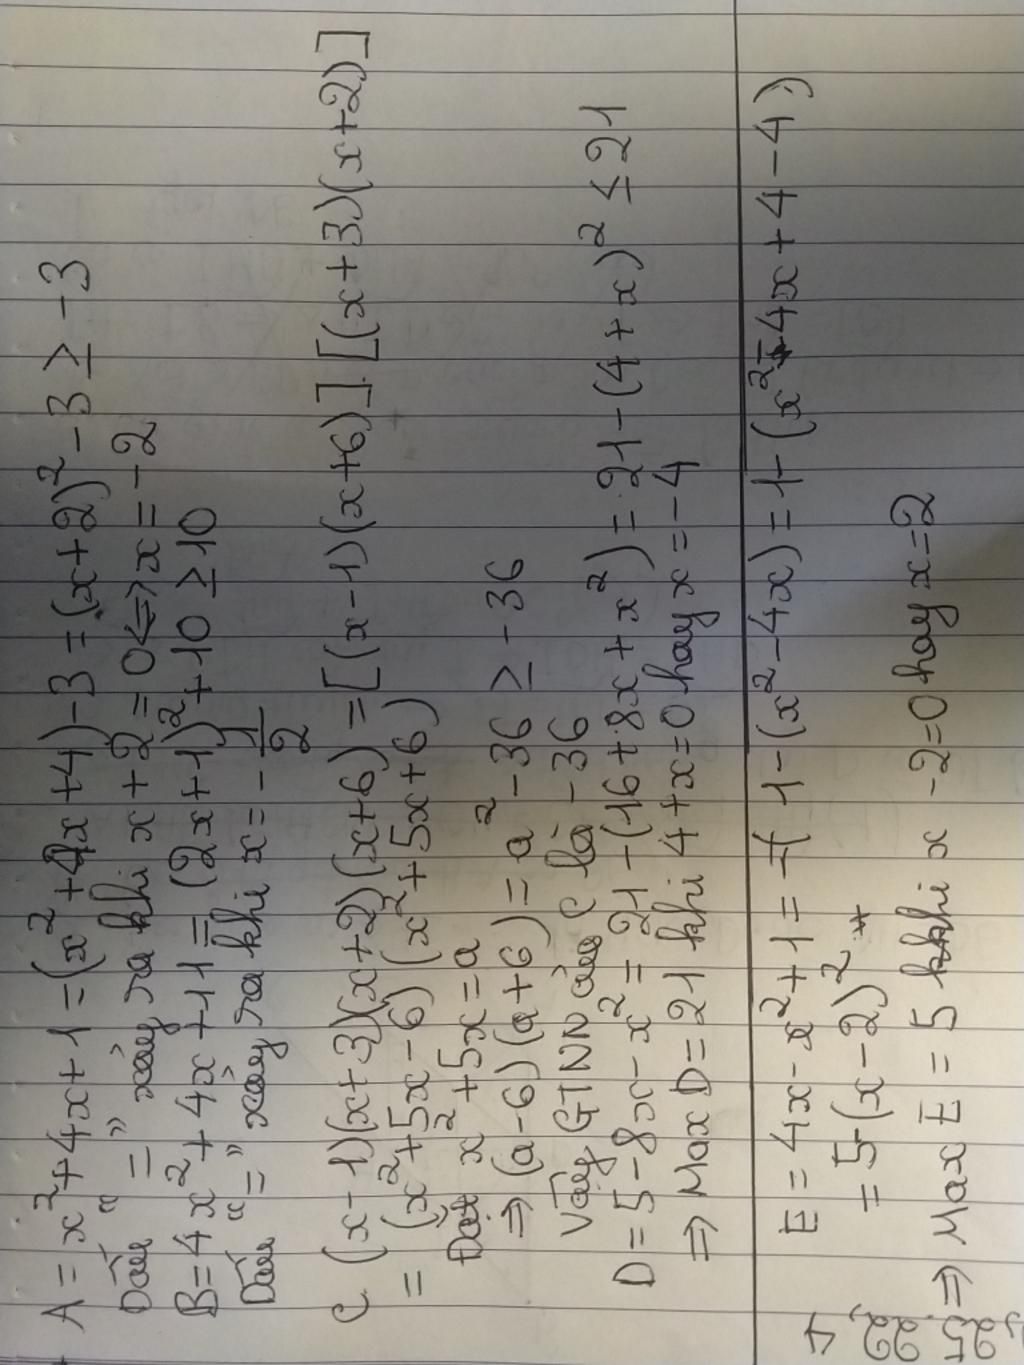 A = x² + 4x + 1 = (x² + 4x + 4) - 3 = (x + 2)² - 3 ≥ -3
Dấu " = " xảy ra khi x + 2 = 0 <=> x = -2
B = 4x² + 4x + 11 = (2x + 1)² + 10 ≥ 10
Dấu "=" xảy ra khi x = -1/2
C (x - 1)(x + 3)(x + 2)(x + 6) = [(x - 1)(x + 6)].[(x + 3)(x + 2)]
= (x² + 5x - 6)(x² + 5x + 6)
Đặt x² + 5x = a
⇒ (a - 6)(a + 6) = a² - 36 ≥ -36
Vậy GTNN của C là -36
D = 5 - 8x - x² = 21 - (16 + 8x + x²) = 21 - (4 + x)² ≤ 21
⇒ Max D = 21 khi 4 + x = 0 hay x = -4
E = 4x - x² + 1 = 1 - (x² - 4x) = 1 - (x² - 4x + 4 - 4)
= 5 - (x - 2)²
⇒ Max E = 5 khi x - 2 = 0 hay x = 2